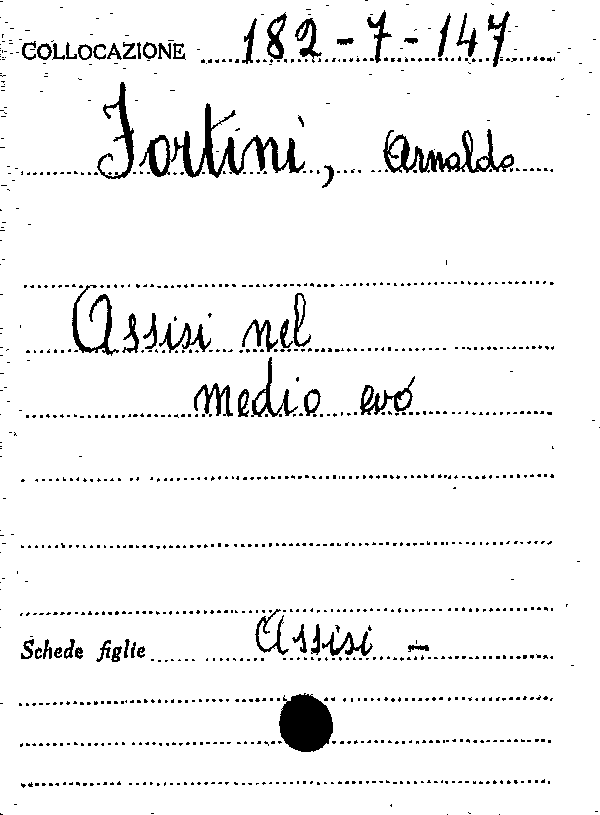 COLLOCAZIONE 182-7-147
Fortini, Arnaldo
Assisi nel
medio evo
Schede figlie Assisi -